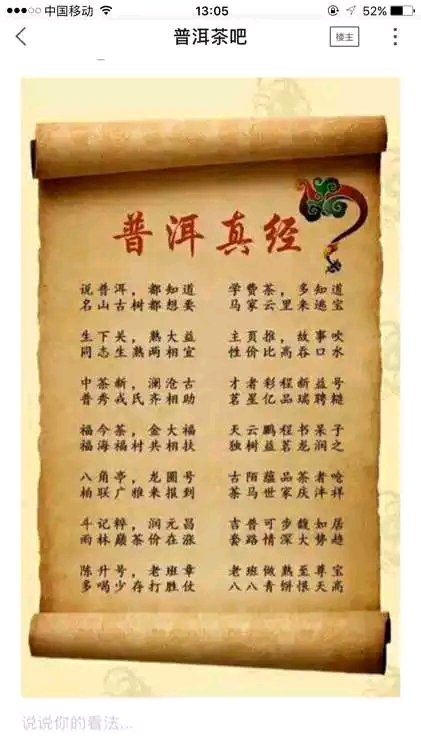 中国移动 13:05 52%
普洱茶吧 楼主
普洱真经
说普洱，都知道
名山古树都想要
生下关，熟大益
同志生熟两相宜
中茶新，澜沧古
普秀戎氏齐相助
福今茶，金大福
福海福村共相扶
八角亭，龙圆号
柏联广雅来报到
斗记粹，润元昌
雨林巅茶价在涨
陈升号，老班章
多喝少存打胜仗
学费茶，多知道
马家云里来逃宝
主页推，故事吹
性价比高吞口水
才者彩程新益号
茗星亿品瑞聘糙
天云鹏程书呆子
独树益茗龙润之
古陌蕴品茶者呛
茶马世家庆沣祥
吉普可步馥如居
套路情深大势趋
老班做熟至尊宝
八八青饼恨天高
说说你的看法...